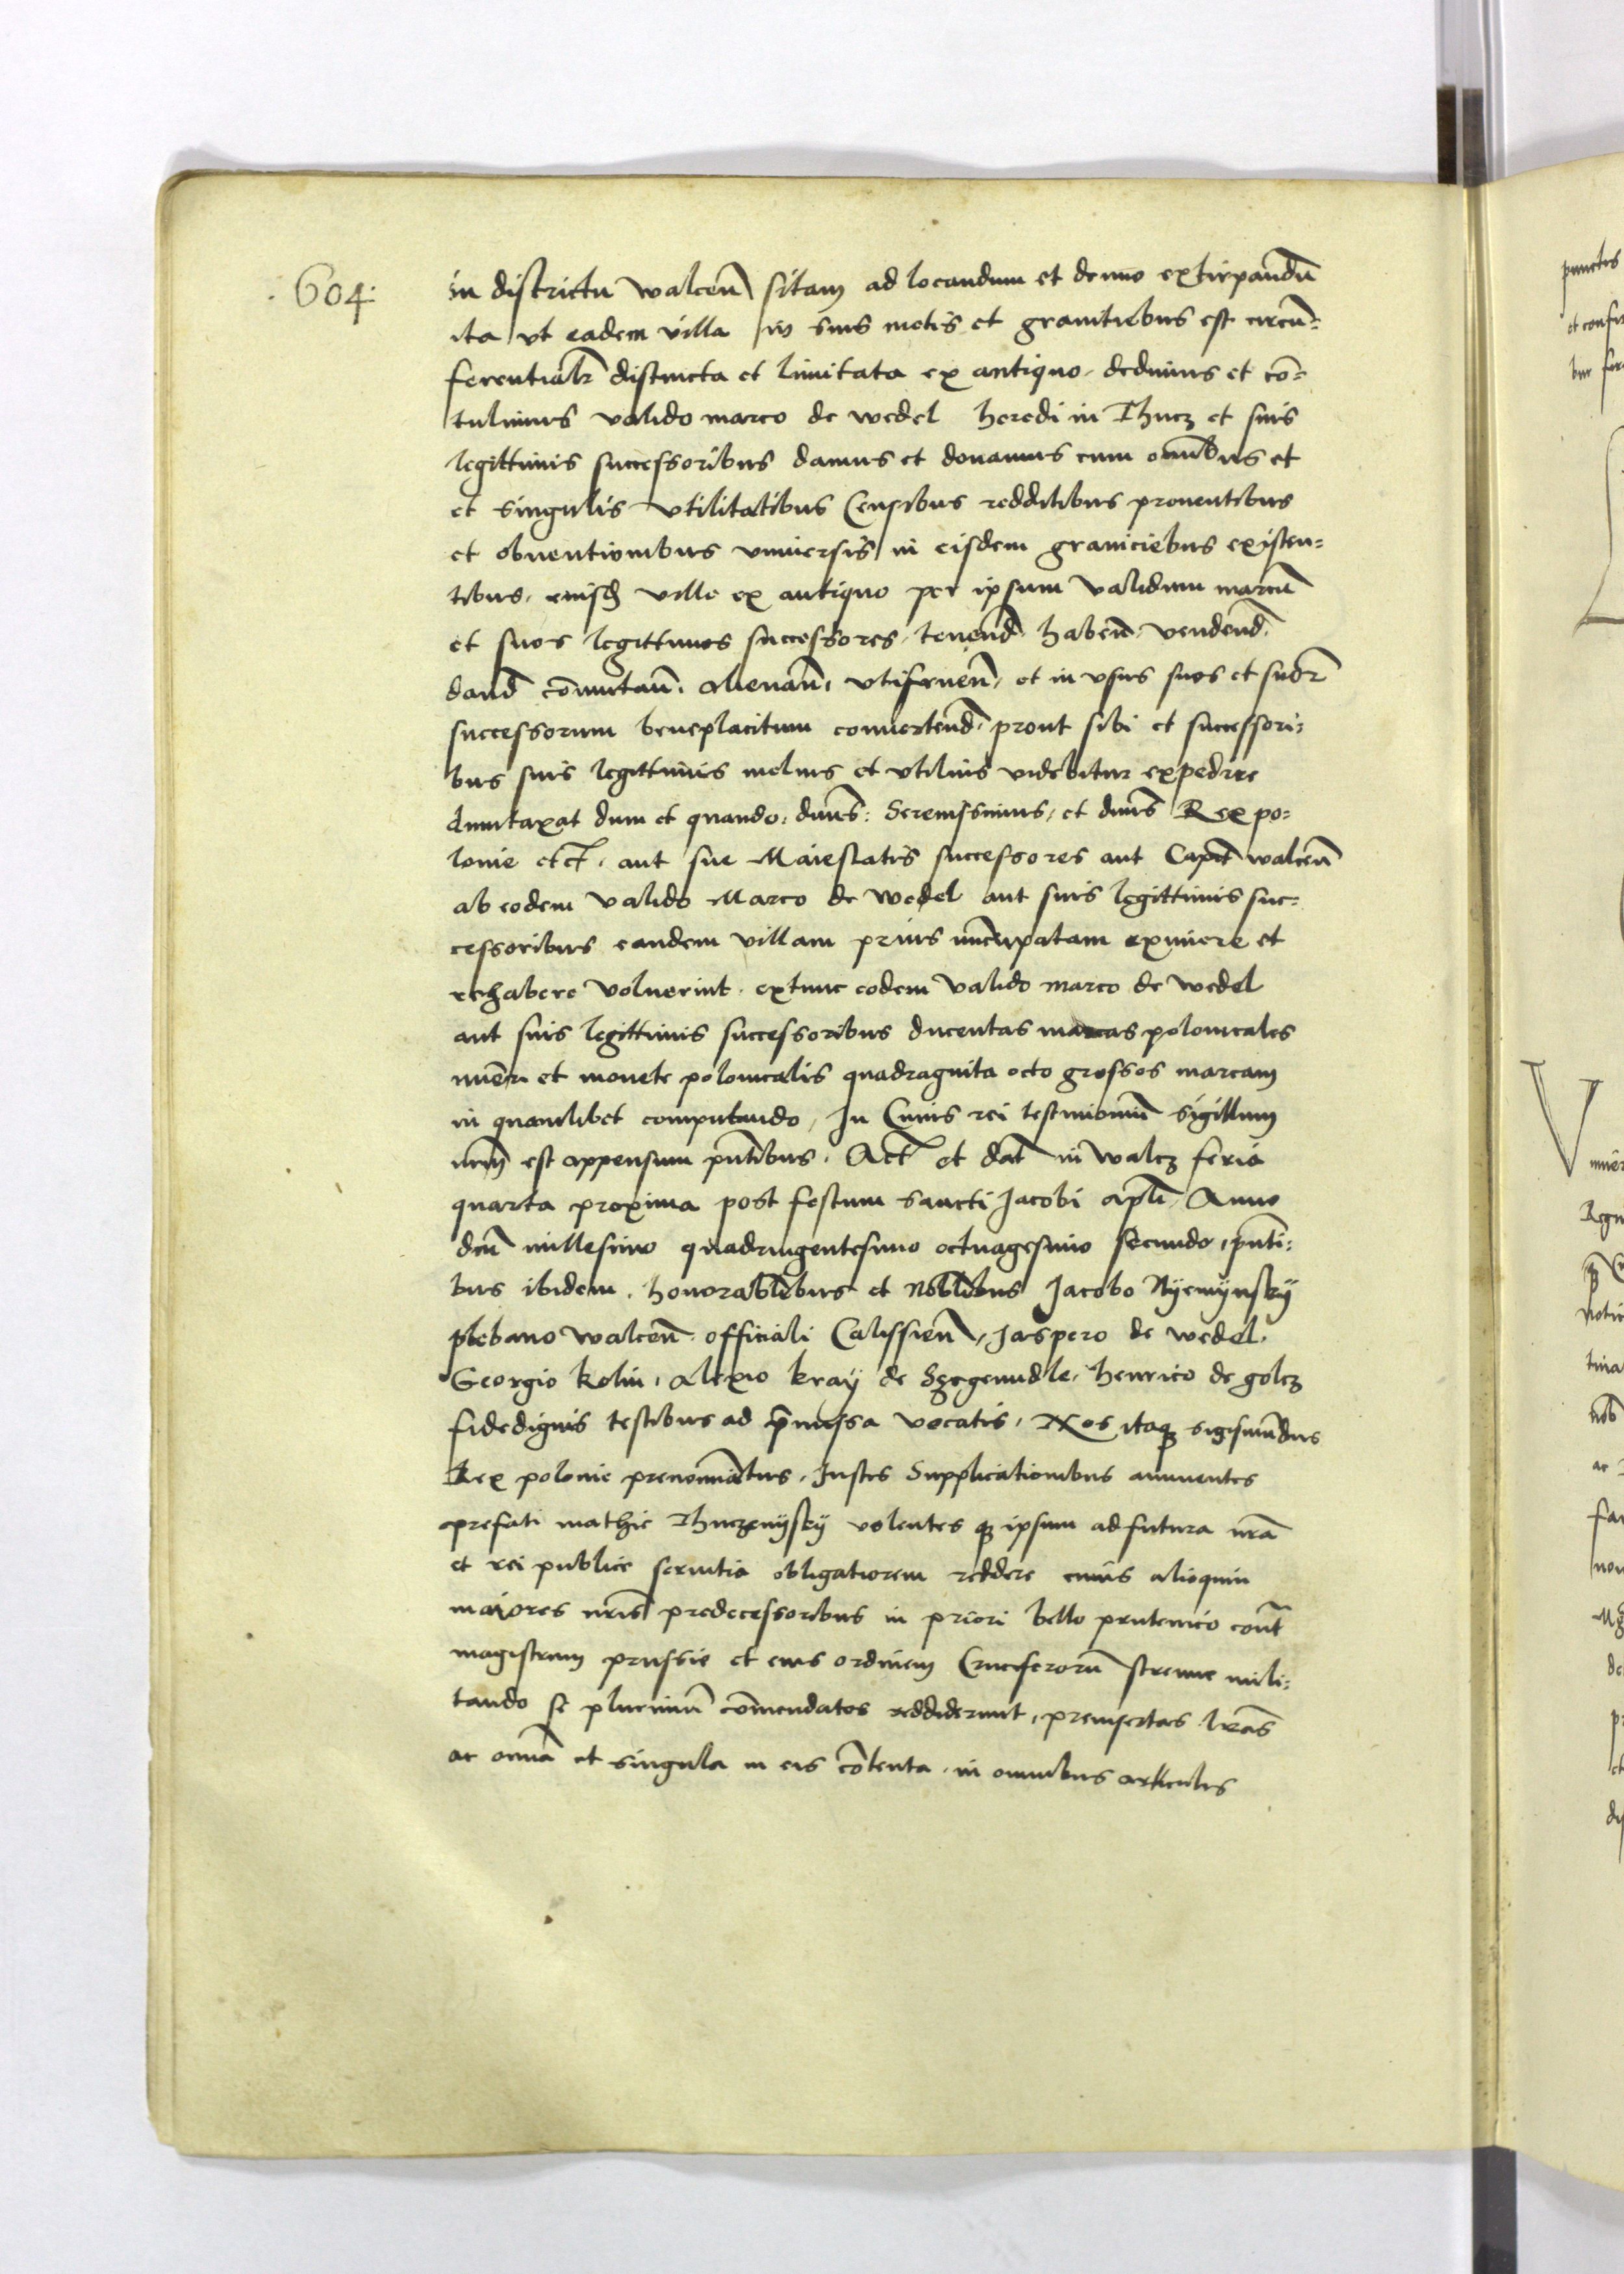 604
in districtu walceñ sitam ad locandum et denuo extirpandũ
ita vt eadem villa in suis metis et granitiebus est circũ-
ferentialr distincta et limitata ex antiquo dedimus et cõ-
tulimus valido marco de wedel heredi in Thucz et suis
legittimis successoribus damus et donamus cum omībus et
et singulis vtilitatibus Censibus redditibus prouentibus
et obuentionibus vniuersis in eisdem graniciebus existen-
tibus, eiusd ville ex antiquo per ipsum validum marcũ
et suos legittimos successores, tenend habeñ vendend
dand cõmutañ. alienañ, vtifrueñ, et in vsus suos et suor
successorum beneplacitum conuertend, prout sibi et successori-
bus suis legittimis melius et vtilius videbitur expedire
dumtaxat dum et quando: dñus: Serenissimus, et dñus Rex po-
lonie etct, aut sue Maiestatis successores aut Capit walceñ
ab eodem valido Marco de Wedel aut suis legittimis suc-
cessoribus eandem villam prius nuncupatam eximere et
rehabere voluerint. extunc eodem valido marco de wedel
aut suis legittimis successoribus ducentas marcas polonicales
nũeri et monete polonicalis quadraginta octo grossos marcam
in quamlibet computando, In Cuius rei testimoniũ sigillum
nrm est appensum pñtibus. Act et dat in walcz feria
quarta proxima post festum sancti Jacobi apli, Anno
dñi millesimo quadringentesimo octuagesimo secundo, pñti-
bus ibidem, honorablibus et Noblibus Jacobo Nyemynsky
plebano walceñ officiali Calissieñ, Jaspero de wedel,
Georgio kolin, Alexio kray de Szegenudle, henrico de golcz
fidedignis testibus ad p̃missa vocatis, Nos itaq sigismũdus
Rex polonie prenominatus, Justis Supplicationibus annuentes
prefati mathie Thuczenysky volentes q ipsum ad futura nrã
et rei publice seruitia obligatiorem reddere cuius alioquin
maiores nris predecessoribus in priori bello prutenico cont
magistrum prussie et eius ordinem Cruciferorũ strenue mili-
tando se plurimũ cõmendatos reddiderunt, preinsertas lrãs
ac omnã et singula in eis cõtenta, in omnibus articulis